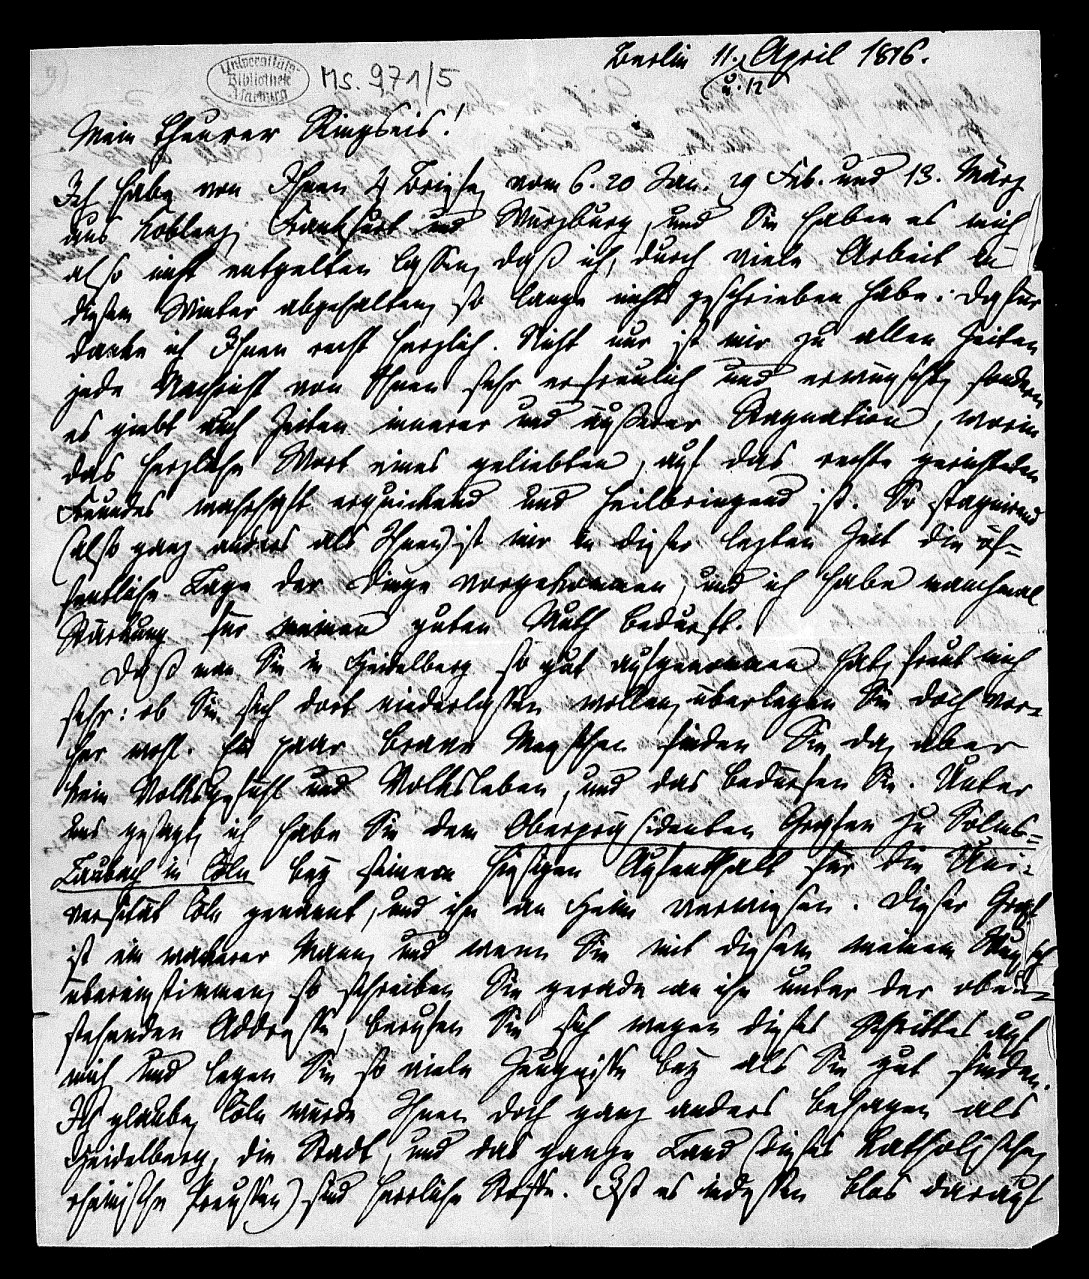 Berlin 11. April 1816.
u. 12
Universitäts-
Bibliothek
Marburg
Ms. 971/5
Mein theurer Ringseis!
Ich habe von Ihnen 4 Briefe, vom 6. 20 Jan. 29 Feb. und 13. März
aus Koblenz, Frankfurt und Würzburg, und Sie haben es mich
also nicht entgelten lassen, daß ich, durch viele Arbeit in
diesem Winter abgehalten, so lange nicht geschrieben habe. Dafür
danke ich Ihnen recht herzlich. Nicht nur ist mir zu allen Zeiten
jede Nachricht von Ihnen sehr erfreulich und erwünscht, sondern
es giebt auch Zeiten innerer und äußerer Stagnation, worin
das herzliche Wort eines geliebten, auf das rechte gerichteten
Freundes wahrhaft erquickend und heilbringend ist. So stagnirend
(also ganz anders als Ihnen) ist mir in dieser lezten Zeit die öf-
fentliche Lage der Dinge vorgekommen, und ich habe manchmal
Stärkung für meinen guten Muth bedurft.
Daß man Sie in Heidelberg so gut aufgenommen hat, freut mich
sehr: ob Sie sich dort niederlassen wollen, überlegen Sie doch vor-
her wohl. Ein paar brave Menschen finden Sie da, aber
kein Volksgefühl und Volksleben, und das bedürfen Sie. Unter
uns gesagt, ich habe Sie dem Oberpräsidenten Grafen zu Solms-
Laubach in Cöln bey seinem hiesigen Aufenthalt für die Uni-
versität Cöln genannt, und ihn an Heim verwiesen. Dieser Graf
ist ein wackerer Mann, und wenn Sie mit diesem meinem Wunsch
übereinstimmen, so schreiben Sie gerade an ihn unter der oben-
stehenden Addresse, berufen Sie sich wegen dieses Schrittes auf
mich und legen Sie so viele Zeugnisse bey als Sie gut finden.
Ich glaube, Cöln würde Ihnen doch ganz anders behagen als
Heidelberg, die Stadt, und das ganze Land (dieses katholische,
rheinische Preussen) sind herrliche Stoffe. Ist es indessen blos darauf